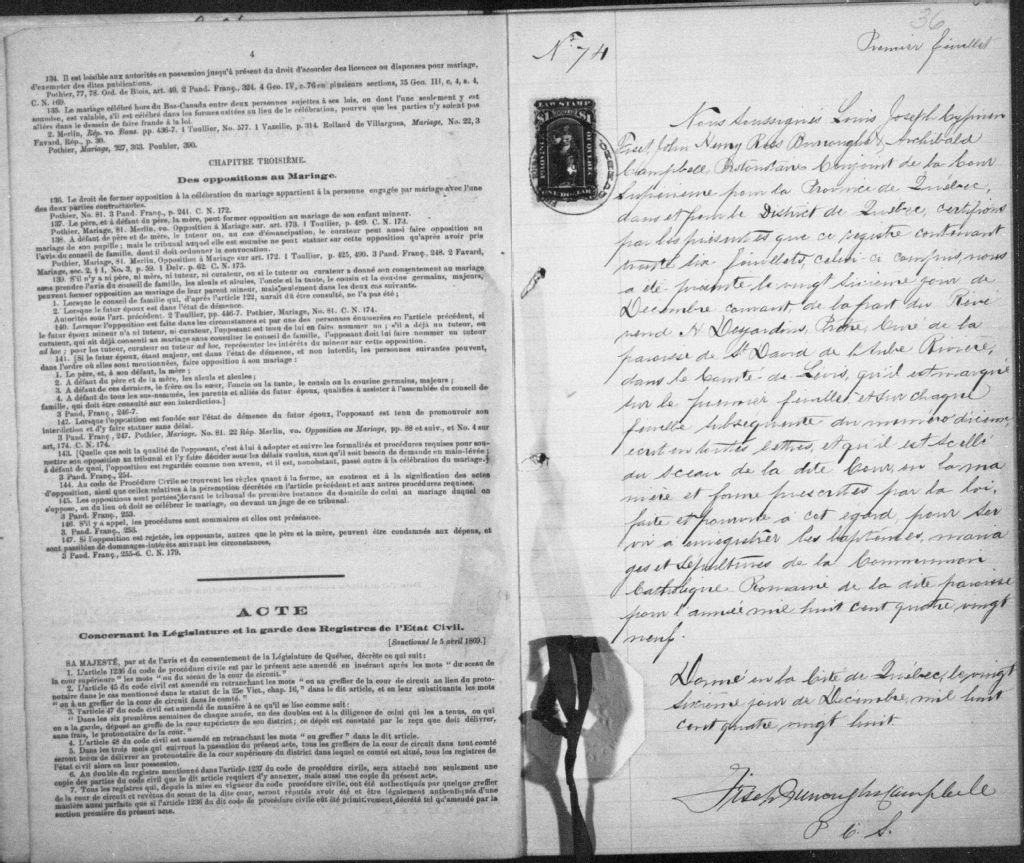 4
134. Il est loisible aux autorités en possession jusqu'à présent du droit d'accorder des licences ou dispenses pour mariage,
d'exempter des dites publications.
Pothier, 77, 78. Ord. de Blois, art. 40. 2 Pand. Franç., 324. 4 Geo. IV, c. 76 en plusieurs sections, 35 Geo. III, c. 4, s. 4,
C. N. 169.
135. Le mariage célébré hors du Bas-Canada entre deux personnes sujettes à ses lois, ou dont l'une seulement y est
soumise, est valable, s'il est célébré dans les formes usitées au lieu de la célébration, pourvu que les parties n'y soient pas
allées dans le dessein de faire fraude à la loi.
2. Merlin, Rép. vo. Bans. pp. 436-7. 1 Toullier, No. 577. 1 Vazeille, p. 314. Rolland de Villargues, Mariage, No. 22, 3
Favard, Rép., p. 30.
Pothier, Mariage, 227, 363. Pouhier, 390.
CHAPITRE TROISIÈME.
Des oppositions au Mariage.
136. Le droit de former opposition à la célébration du mariage appartient à la personne engagée par mariage avec l'une
des deux parties contractantes.
Pothier, No. 81. 3 Pand. Franç., p. 241. C. N. 172.
137. Le père, et à défaut du père, la mère, peut former opposition au mariage de son enfant mineur.
Pothier, Mariage, 81. Merlin, vo. Opposition à Mariage sur. art. 173. 1 Toullier, p. 489. C. N. 173.
138. A défaut de père et de mère, le tuteur ou, au cas d'émancipation, le curateur peut aussi faire opposition au
mariage de son pupille; mais le tribunal auquel elle est soumise ne peut statuer sur cette opposition qu'après avoir pris
l'avis du conseil de famille, dont il doit ordonner la convocation.
Pothier, Mariage, 81. Merlin, Opposition à Mariage sur art. 172. 1 Toullier, p. 425, 490. 3 Pand. Franç., 248. 2 Favard,
Mariage, sec. 2, § 1, No. 3, p. 59. 1 Delv. p. 62. C. N. 175.
139. S'il n'y a ni père, ni mère, ni tuteur, ni curateur, ou si le tuteur ou curateur a donné son consentement au mariage
sans prendre l'avis du conseil de famille, les aïeuls et aïeules, l'oncle et la tante, le cousin et la cousine germains, majeurs,
peuvent former opposition au mariage de leur parent mineur, mais seulement dans les deux cas suivants.
1. Lorsque le conseil de famille qui, d'après l'article 122, aurait dû être consulté, ne l'a pas été;
2. Lorsque le futur époux est dans l'état de démence.
Autorités sous l'art. précédent. 2 Toullier, pp. 446-7. Pothier, Mariage, No. 81. C. N. 174.
140. Lorsque l'opposition est faite dans les circonstances et par une des personnes énumérées en l'article précédent, si
le futur époux mineur n'a ni tuteur, ni curateur, l'opposant est tenu de lui en faire nommer un; s'il a déjà un tuteur, ou
curateur, qui ait déjà consenti au mariage sans consulter le conseil de famille, l'opposant doit lui faire nommer un tuteur
ad hoc; pour les tuteur, curateur ou tuteur ad hoc, représenter les intérêts du mineur sur cette opposition.
141. [Si le futur époux, étant majeur, est dans l'état de démence, et non interdit, les personnes suivantes peuvent,
dans l'ordre où elles sont mentionnées, faire opposition à son mariage:
1. Le père, et, à son défaut, la mère;
2. A défaut du père et de la mère, les aïeuls et aïeules;
3. A défaut de ces derniers, le frère ou la sœur, l'oncle ou la tante, le cousin ou la cousine germains, majeurs;
4. A défaut de tous les sus-nommés, les parents et alliés du futur époux, qualifiés à assister à l'assemblée du conseil de
famille, qui doit être consulté sur son interdiction.]
3 Pand. Franç., 246-7.
142. Lorsque l'opposition est fondée sur l'état de démence du futur époux, l'opposant est tenu de promouvoir son
interdiction et d'y faire statuer sans délai.
3 Pand. Franç., 247. Pothier, Mariage, No. 81. 22 Rép. Merlin, vo. Opposition au Mariage, pp. 88 et suiv., et No. 4 sur
art. 174. C. N. 174.
143. [Quelle que soit la qualité de l'opposant, c'est à lui à adopter et suivre les formalités et procédures requises pour sou-
mettre son opposition au tribunal et l'y faire décider sous les délais voulus, sans qu'il soit besoin de demande en main-levée;
à défaut de quoi, l'opposition est regardée comme non avenue, et il est, nonobstant, passé outre à la célébration du mariage.]
3 Pand. Franç., 254.
144. Au code de Procédure Civile se trouvent les règles quant à la forme, au contenu et à la signification des actes
d'opposition, ainsi que celles relatives à la péremption décrétée en l'article précédent et aux autres procédures requises.
145. Les oppositions sont portées devant le tribunal de première instance du domicile de celui au mariage duquel on
s'oppose, ou du lieu où doit se célébrer le mariage, ou devant un juge de ce tribunal.
3 Pand. Franç., 253.
146. S'il y a appel, les procédures sont sommaires et elles ont préséance.
3 Pand. Franç., 253.
147. Si l'opposition est rejetée, les opposants, autres que le père et la mère, peuvent être condamnés aux dépens, et
sont passibles de dommages-intérêts suivant les circonstances.
3 Pand. Franç., 255-6. C. N. 179.
ACTE
Concernant la Législature et la garde des Registres de l'Etat Civil.
[Sanctionné le 5 avril 1869.]
SA MAJESTÉ, par et de l'avis et du consentement de la Législature de Québec, décrète ce qui suit:
1. L'article 1236 du code de procédure civile est par le présent acte amendé en insérant après les mots "du sceau de
la cour supérieure" les mots "ou du sceau de la cour de circuit."
2. L'article 45 du code civil est amendé en retranchant les mots "ou au greffier de la cour de circuit au lieu du proto-
notaire dans le cas mentionné dans le statut de la 25e Vict., chap. 16," dans le dit article, et en leur substituants les mots
"ou à un greffier de la cour de circuit dans le comté."
3. L'article 47 du code civil est amendé de manière à se qu'il se lise comme suit:
"Dans les six premières semaines de chaque année, un des doubles est à la diligence de celui qui les a tenus, ou qui
en a la garde, déposé au greffe de la cour supérieure de son district; ce dépôt est constaté par le reçu que doit délivrer,
sans frais, le protonotaire de la cour."
4. L'article 48 du code civil est amendé en retranchant les mots "ou greffier" dans le dit article.
5. Dans les trois mois qui suivront la passation du présent acte, tous les greffiers de la cour de circuit dans tout comté
seront tenus de délivrer au protonotaire de la cour supérieure du district dans lequel ce comté est situé, tous les registres de
l'état civil alors en leur possession.
6. Au double du registre mentionné dans l'article 1237 du code de procédure civile, sera attaché non seulement une
copie des parties du code civil que le dit article requiert d'y annexer, mais aussi une copie du présent acte.
7. Tous les registres qui, depuis la mise en vigueur du code procédure civile, ont été authentiqués par quelque greffier
de la cour de circuit et revêtus du sceau de la dite cour, seront réputés avoir été et être légalement authentiqués d'une
manière aussi parfaite que si l'article 1236 du dit code de procédure civile eût été primitivement décrété tel qu'amendé par la
section première du présent acte.
36
Premier feuillet
No 74
LAW STAMP
$1 $1
PROVINCE OF QUEBEC
ONE DOLLAR
Nous soussignés Louis Joseph Cyprien
Fiset, John Henry Ross Burroughs & Archibald
Campbell Protonotaire Conjoint de la Cour
Supérieure pour la Province de Québec,
dans et pour le District de Québec, certifions
par les présentes que ce registre contenant
trente six feuillets, celui-ci compris, nous
a été présenté le vingt sixième jour de
Décembre courant, de la part du Révé
rend N Desjardins, Prêtre, Curé de la
paroisse de St David de l'Aube Rivière,
dans le Comté de Levis, qu'il est marqué
sur le premier feuillet et sur chaque
feuillet subséquent du numéro d'icieux,
écrit en toutes lettres, et qu'il est scellé
du sceau de la dite Cour, en la ma
nière et forme prescrites par la loi,
faite et pourvue à cet egard, pour ser
vir à enregistrer les baptêmes, maria
ges et sépultures de la Communion
Catholique Romaine de la dite paroisse
pour l'année mil huit cent quatre vingt
neuf.
Donné en la Cité de Québec, le vingt
sixième jour de Décembre, mil huit
cent quatre vingt huit
Fiset Burroughs Campbell
P. C. S.